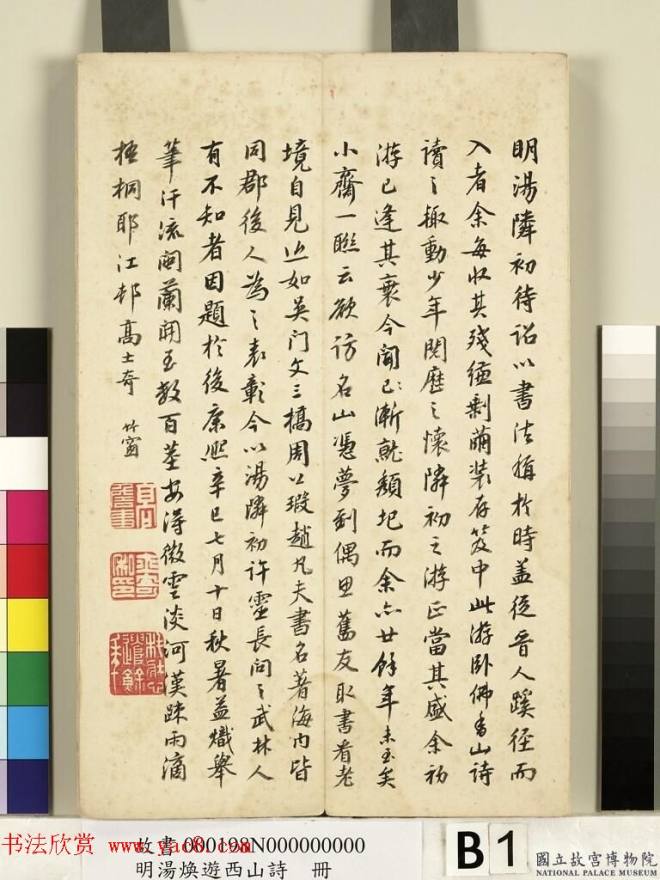 明湯隣初待詔以書法稱於時蓋從晉人蹊徑而
入者余每收其殘縑剩繭装存笈中此游卧佛香山詩
讀之輙動少年閱歷之懷隣初之游正當其盛余初
游已逢其衰今聞已漸就頽圯而余亦廿餘年未至矣
小齋一聫云欲訪名山憑夢到偶思舊友取書看老
境自見近如吴门文三橋周公瑕趙凡夫書名著海内皆
同郡後人為之表彰今以湯隣初许靈長问之武林人
有不知者因題於後康熙辛巳七月十日秋暑益熾舉
筆汗流闼蘭開至数百莖安得微雲淡河漢疎雨滴
梧桐耶江邨高士奇
竹窗
书法欣赏
故書 000198N000000000
明湯煥遊西山詩 冊
B 1
國立故宮博物院
NATIONAL PALACE MUSEUM